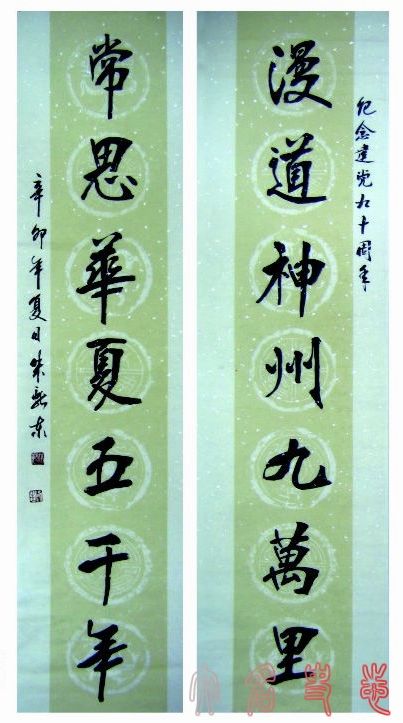 纪念建党九十周年
漫道神州九萬里
常思華夏五千年
辛卯年夏日朱